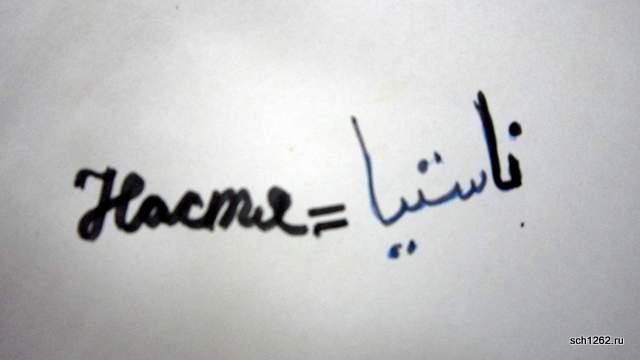 Настя = ناستيا
sch1262.ru